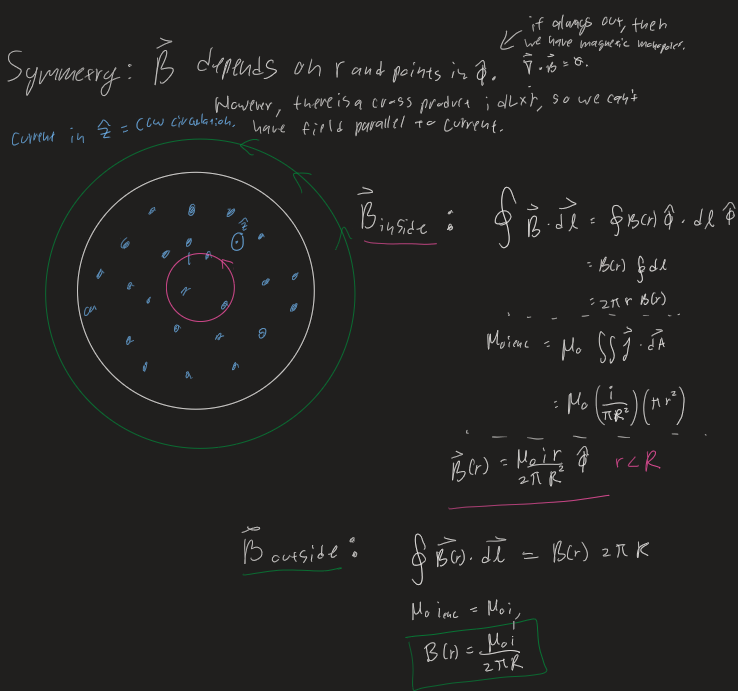 if always out, then
we have magnetic monopoles.
∇⃗ · B⃗ = 0.
Symmetry: B⃗ depends on r and points in φ̂.
However, there is a cross product i dL × r̂, so we can't
have field parallel to current.
Current in ẑ = CCW circulation.
ẑ
B⃗ inside : ∮ B⃗ · dl⃗ = ∮ B(r) φ̂ · dl φ̂
= B(r) ∮ dl
= 2πr B(r)
μ₀ i enc = μ₀ ∬ J⃗ · dA⃗
= μ₀ (i/πR²)(πr²)
B⃗(r) = μ₀ i r / 2πR² φ̂ r < R
B⃗ outside : ∮ B⃗(r) · dl⃗ = B(r) 2πR
μ₀ i enc = μ₀ i,
B(r) = μ₀ i / 2πR